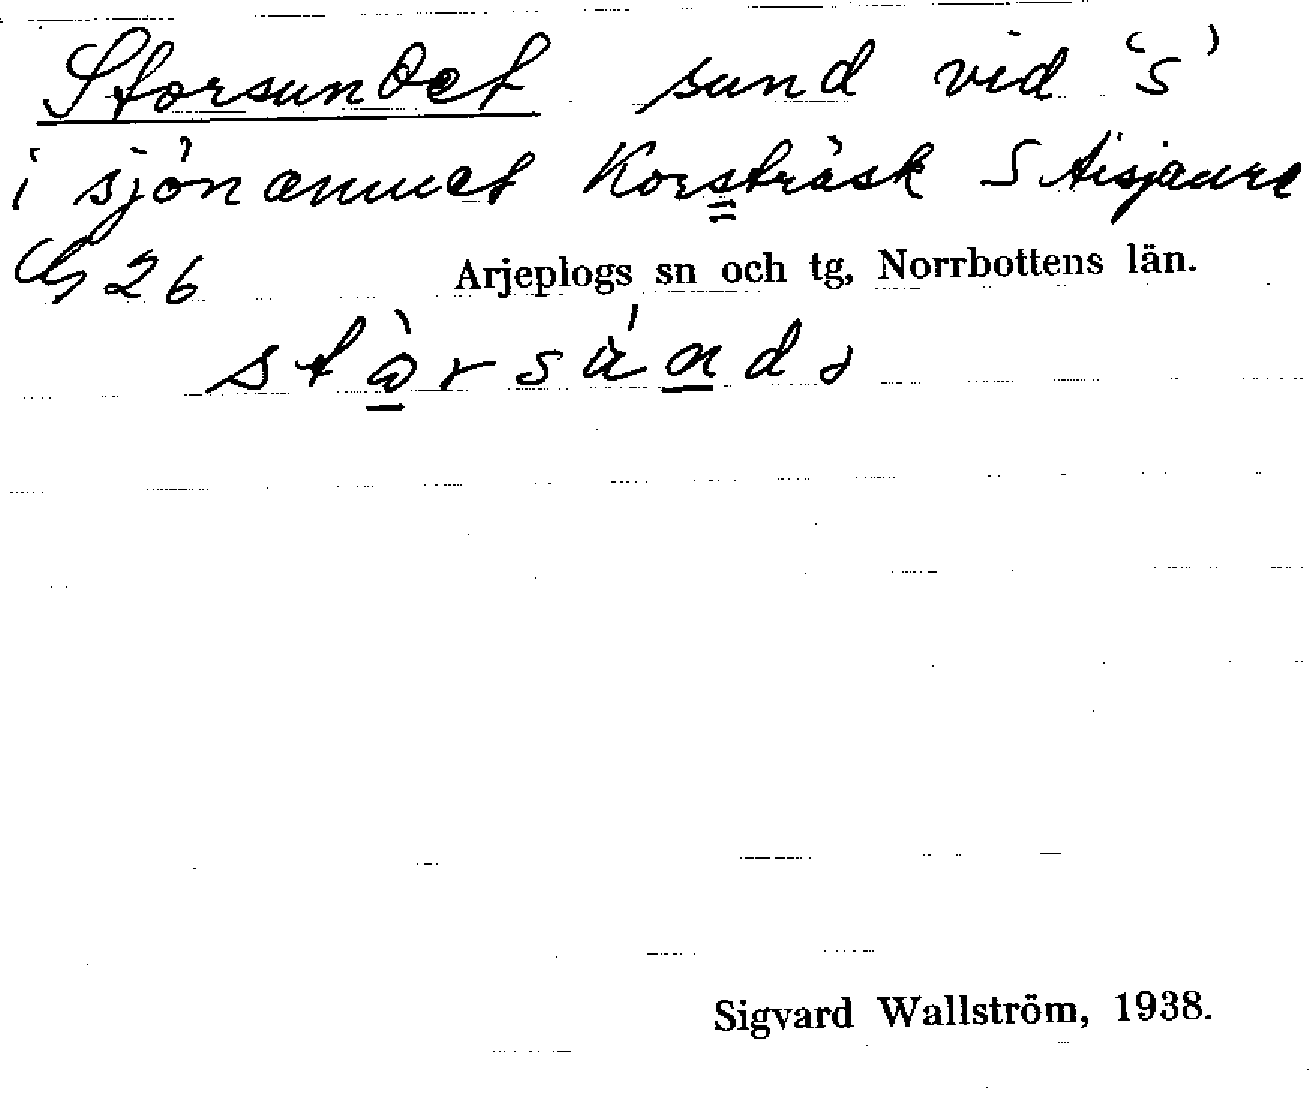 Storsundet sund vid 's'
i sjönamnet Korsträsk S Aisjaure
G 26 Arjeplogs sn och tg, Norrbottens län.
Sigvard Wallström, 1938.